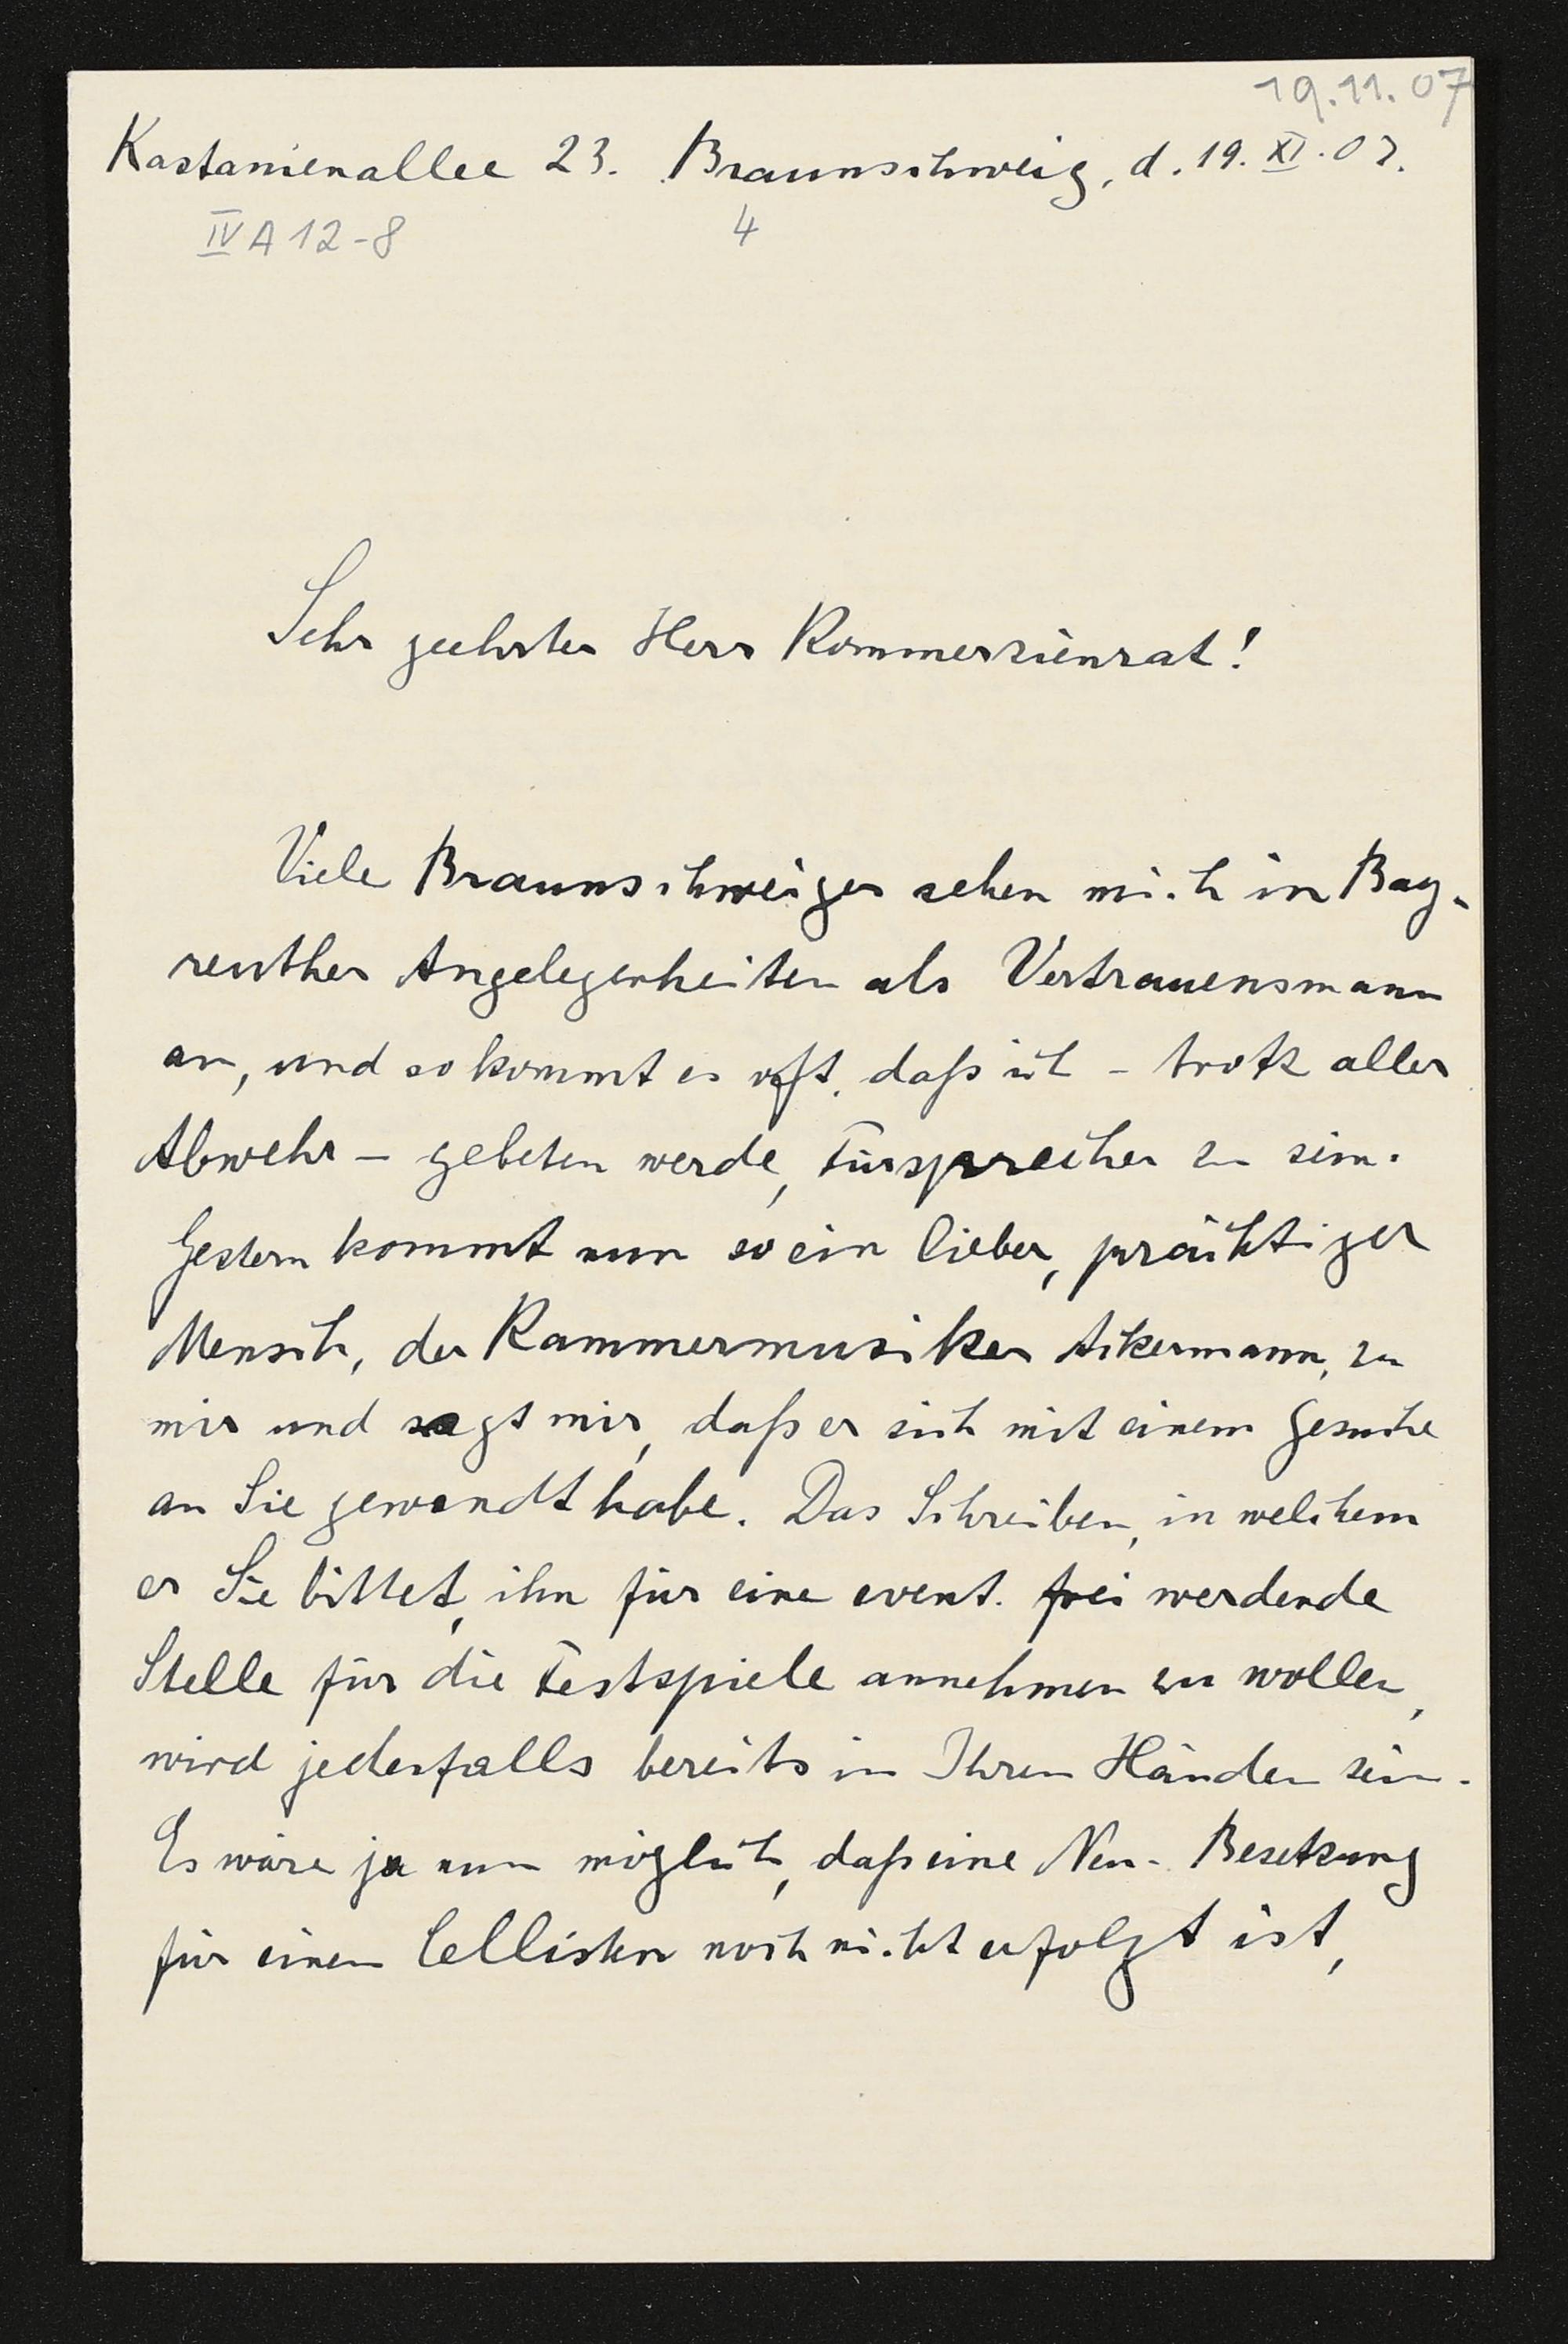 19.11.07
Kastanienallee 23. Braunschweig, d. 19. XI. 07.
IV A 12-8 4
Sehr geehrter Herr Kommerzienrat!
Viele Braunschweiger sehen mich in Bay-
reuther Angelegenheiten als Vertrauensmann
an, und so kommt es oft, daß ich - trotz aller
Abwehr - gebeten werde, Fürsprecher zu sein.
Gestern kommt nun so ein lieber, prächtiger
Mensch, der Kammermusiker Ackermann, zu
mir und sagt mir, daß er sich mit einem Gesuche
an Sie gewandt habe. Das Schreiben, in welchem
er Sie bittet, ihn für eine event. frei werdende
Stelle für die Festspiele annehmen zu wollen,
wird jedenfalls bereits in Ihren Händen sein.
Es wäre ja nun möglich, daß eine Neu-Besetzung
für einen Cellisten noch nicht erfolgt ist,